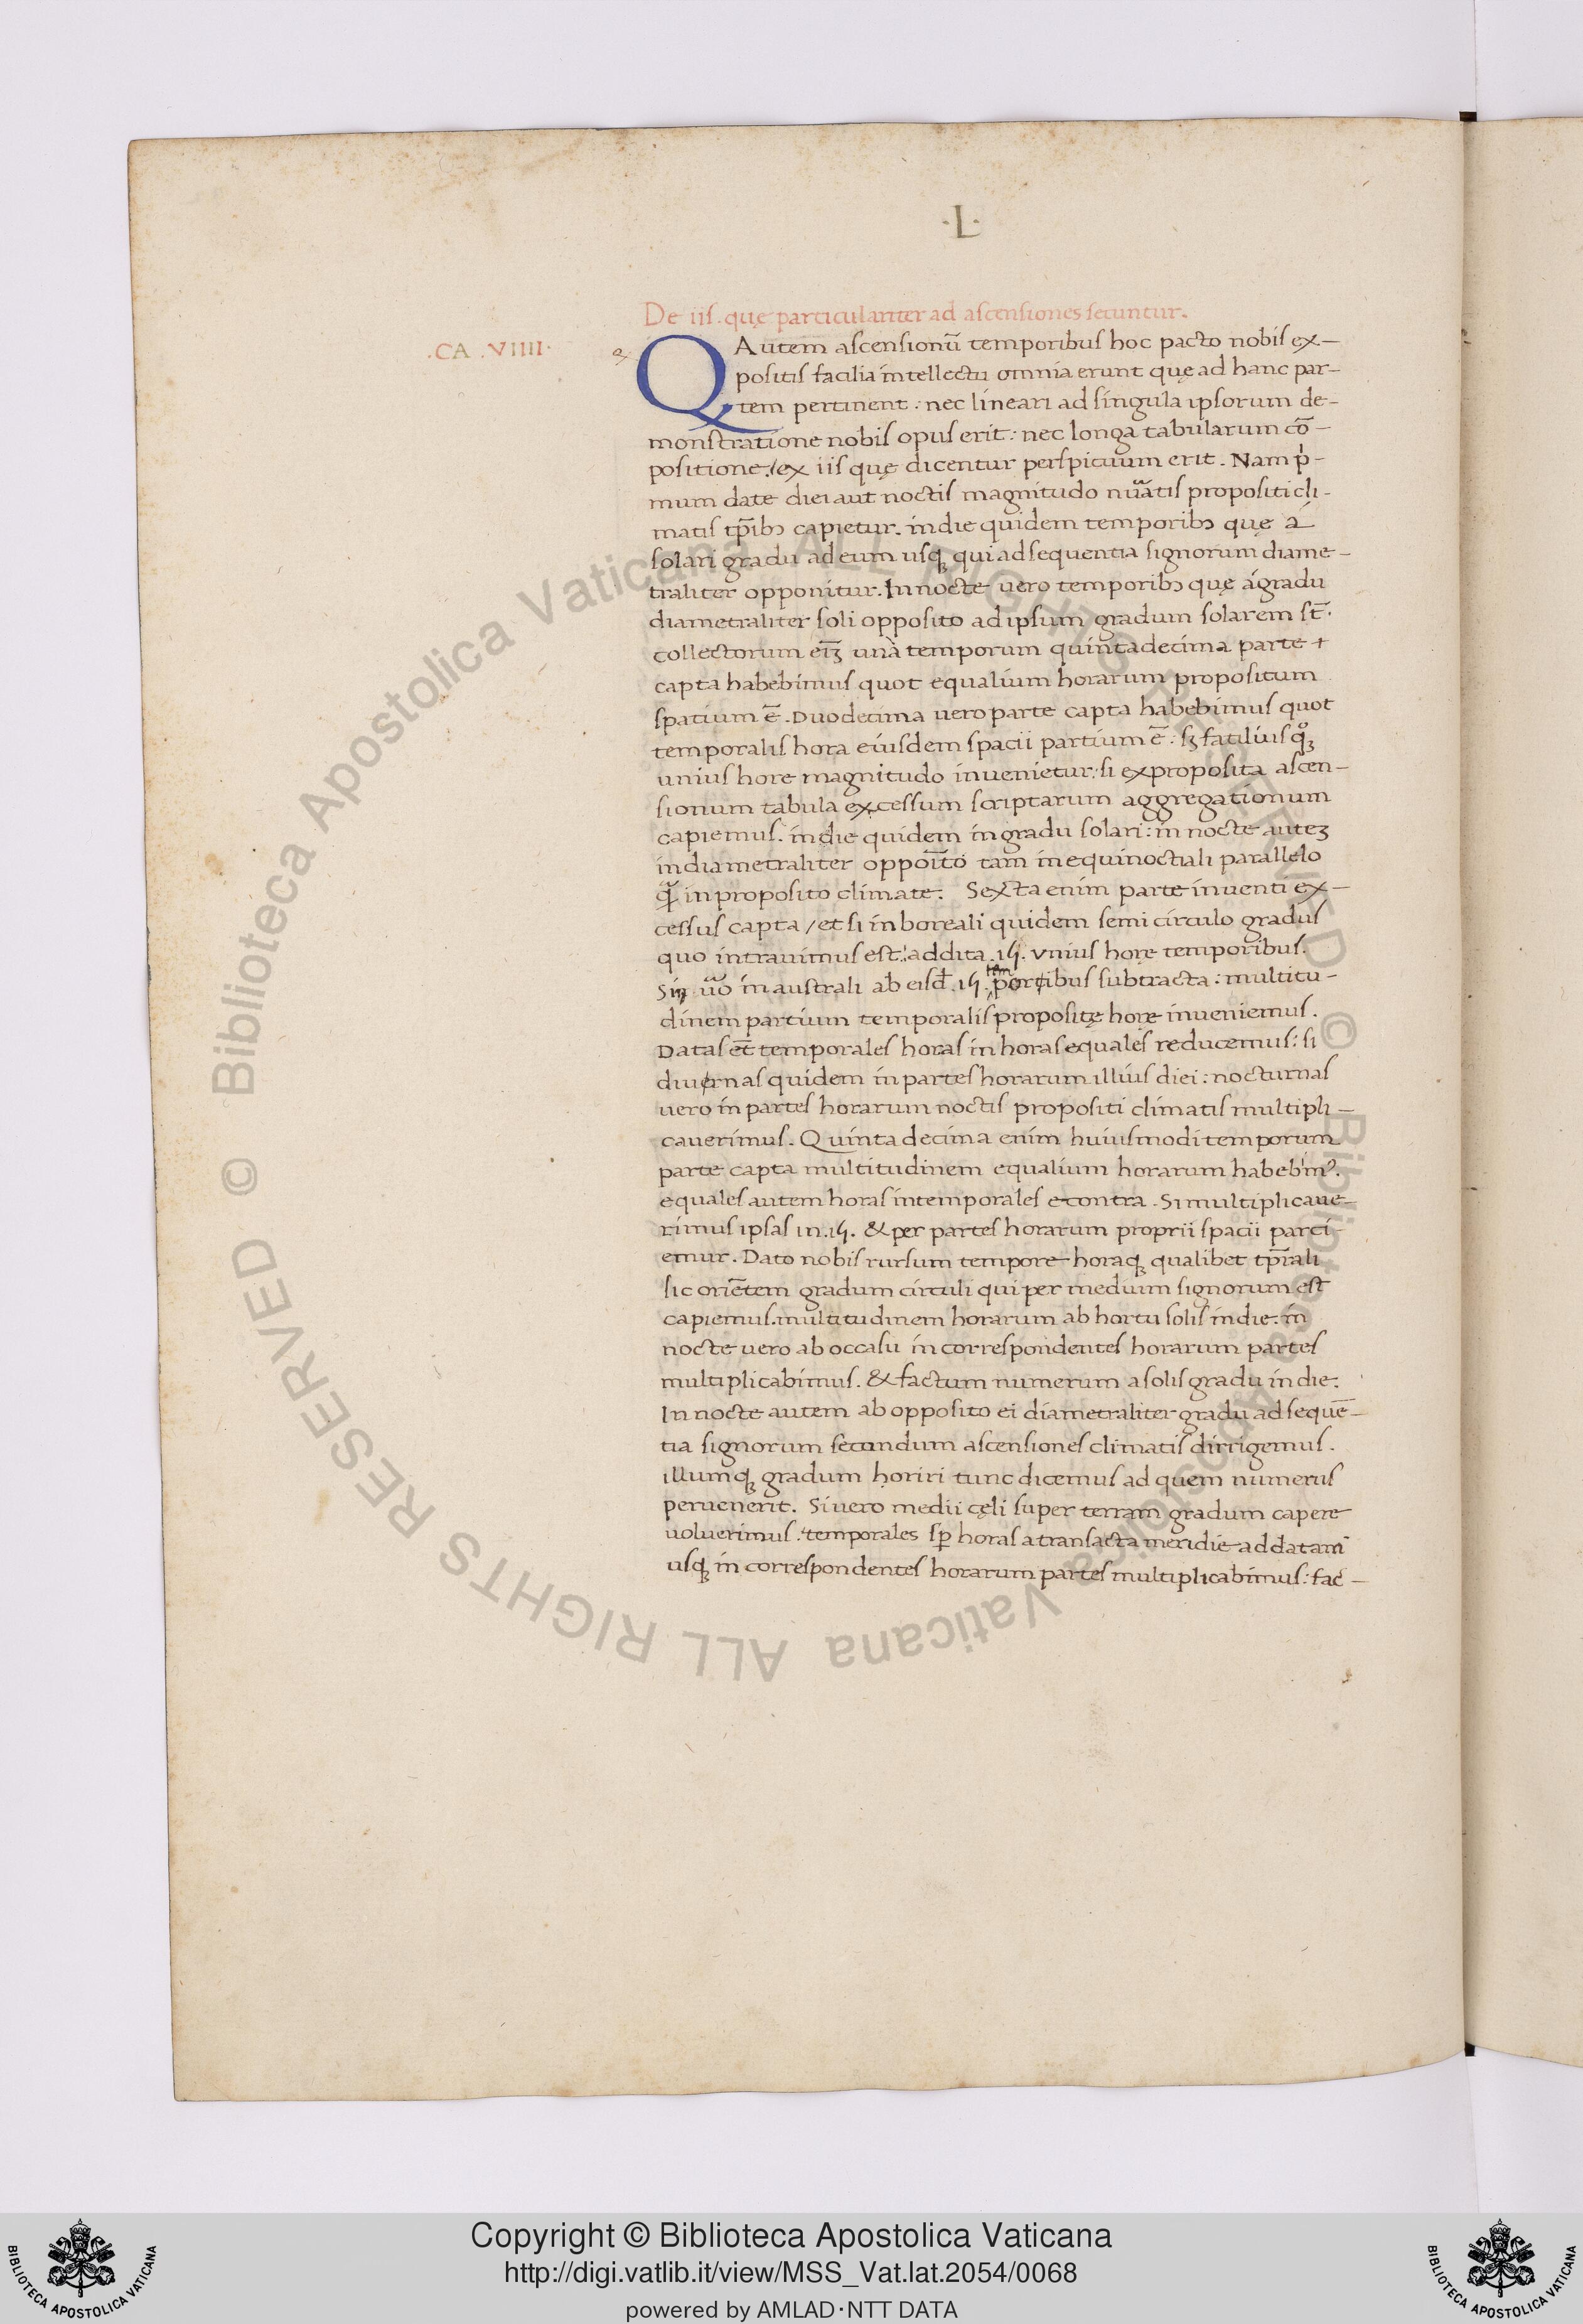 ·L·
De iis. quę particulariter ad ascensiones secuntur.
.CA .VIIII.
QAutem ascensionũ temporibus hoc pacto nobis ex—
positis facilia intellectu omnia erunt quę ad hanc par—
tem pertinent: nec lineari ad singula ipsorum de-
monstratione nobis opus erit: nec longa tabularum cõ—
positione / ex iis quę dicentur perspicuum erit. Nam p̍-
mum date diei aut noctis magnitudo nũatis propositi cli-
matis tp̃ibꝫ capietur. in die quidem temporibꝫ quę á
solari gradu ad eum usqꝫ qui ad sequentia signorum diame—
traliter opponitur. In nocte uero temporibꝫ quę á gradu
diametraliter soli opposito ad ipsum gradum solarem st̃.
collectorum eĩꝫ unà temporum quintadecima parte +
capta habebimus quot equalium horarum propositum
spatium ẽ. Duodecima uero parte capta habebimus quot
temporalis hora eiusdem spacii partium ẽ: sꝫ facilius qͦꝫ
unius hore magnitudo inuenietur: si ex proposita ascen—
sionum tabula excessum scriptarum aggregationum
capiemus. in die quidem in gradu solari: in nocte auteꝫ
in diametraliter oppoĩto tam in equinoctiali parallelo
q̃ in proposito climate. Sexta enim parte inuenti ex—
cessus capta / et si in boreali quidem semi circulo gradus
quo intrauimus est: addita .15. vnius hore temporibus.
Sin ũo in australi ab eisd̃ .15. tem portibus subtracta: multitu-
dinem partium temporalis propositę hore inueniemus.
Datas et̃ temporales horas in horas equales reducemus: si
diurnas quidem in partes horarum illius diei: nocturnas
uero in partes horarum noctis propositi climatis multipli—
cauerimus. Quinta decima enim huiusmodi temporum
parte capta multitudinem equalium horarum habebimꝰ.
equales autem horas in temporales econtra. Si multiplicaue—
rimus ipsas in .15. & per partes horarum proprii spacii parti-
emur. Dato nobis rursum tempore horaqꝫ qualibet tp̃rali
sic oriẽtem gradum circuli qui per medium signorum est
capiemus. multitudinem horarum ab hortu solis in die. in
nocte uero ab occasu in correspondentes horarum partes
multiplicabimus. & factum numerum a solis gradu in die.
In nocte autem ab opposito ei diametraliter gradu ad sequẽ—
tia signorum secundum ascensiones climatis dirrigemus.
illumqꝫ gradum horiri tunc dicemus ad quem numerus
peruenerit. Si uero medii cęli super terram gradum capere
uoluerimus: temporales sp̃ horas a transacta meridie ad datam
usqꝫ in correspondentes horarum partes multiplicabimus: fac—
© Biblioteca Apostolica Vaticana ALL RIGHTS RESERVED © Biblioteca Apostolica Vaticana ALL RIGHTS RESERVED
Copyright © Biblioteca Apostolica Vaticana
http://digi.vatlib.it/view/MSS_Vat.lat.2054/0068
powered by AMLAD·NTT DATA
BIBLIOTECA APOSTOLICA VATICANA
BIBLIOTECA APOSTOLICA VATICANA